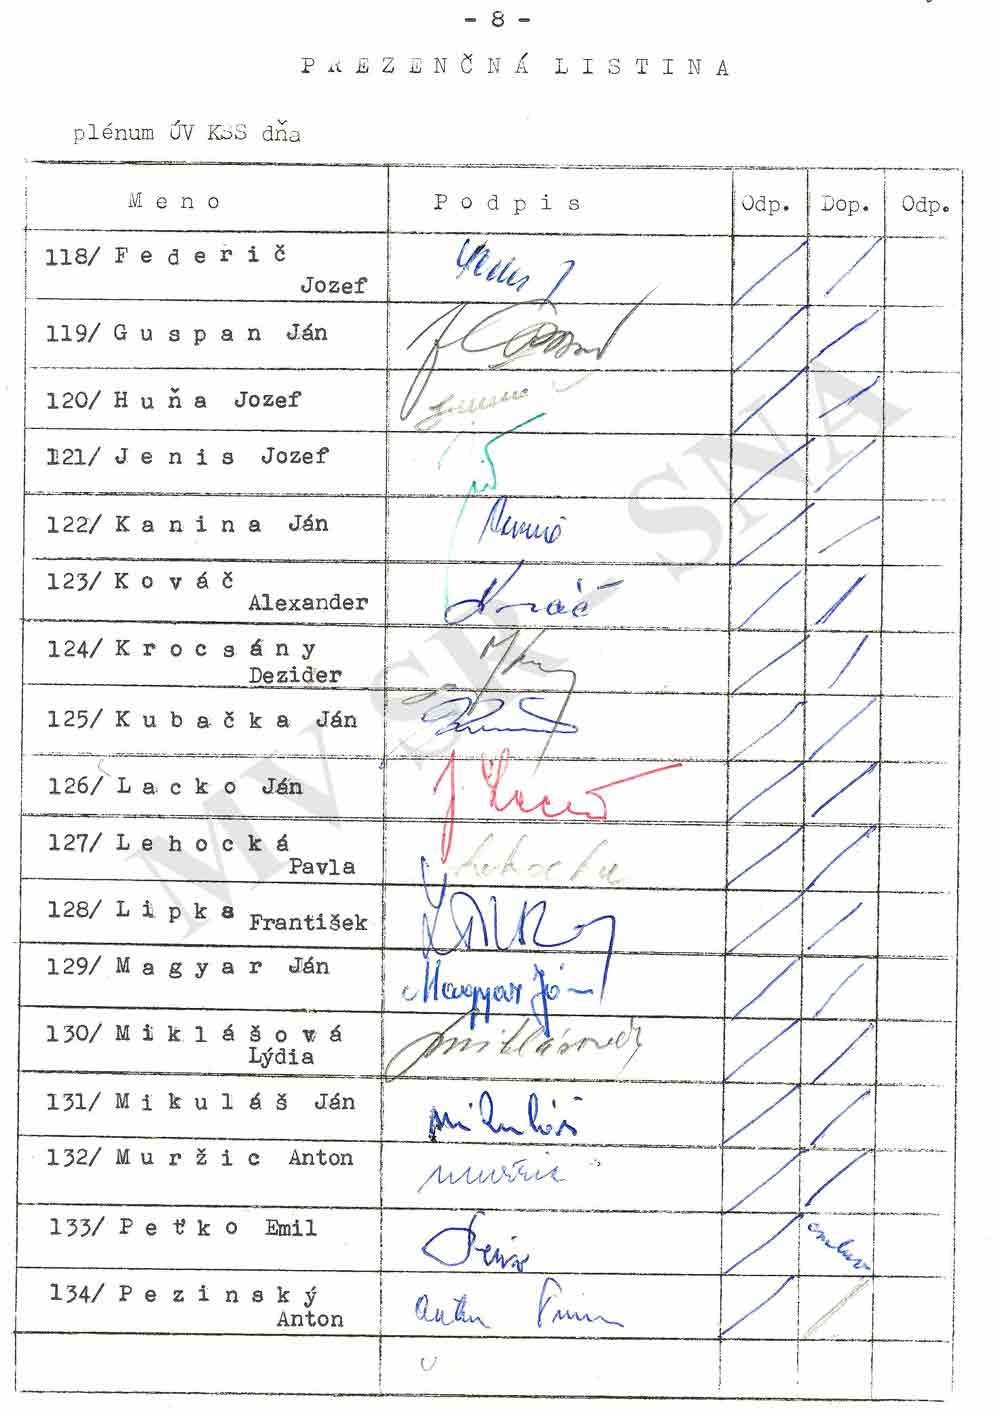 - 8 -
PREZENČNÁ LISTINA
plénum ÚV KSS dňa
Meno Podpis Odp. Dop. Odp.
118/ Federič
Jozef
119/ Guspan Ján
120/ Huňa Jozef
121/ Jenis Jozef
122/ Kanina Ján
123/ Kováč
Alexander
Kováč
124/ Krocsány
Dezider
125/ Kubačka Ján
126/ Lacko Ján
J. Lacko
127/ Lehocká
Pavla
Lehocká
128/ Lipka
František
129/ Magyar Ján
Magyar Ján
130/ Miklášová
Lýdia
Miklášová
131/ Mikuláš Ján
Mikuláš
132/ Muržic Anton
Muržic
133/ Peťko Emil
134/ Pezinský
Anton
Anton
MV SR - SNA